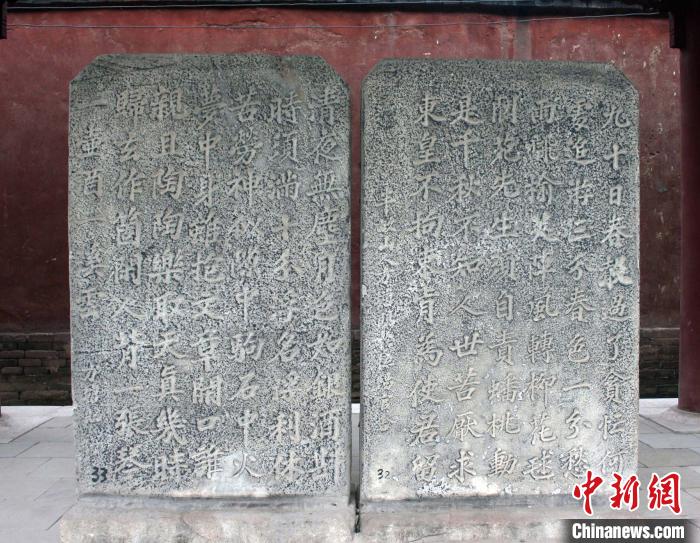 九十日春都過了貪忙何
處追遊三分春色一分愁
雨翻榆莢陣風轉柳花毬
閬苑先生須自責蟠桃動
是千秋不知人世苦厭求
東皇不拘束肯為使君留
32
清夜無塵月色如銀酒斟
時須滿十分浮名浮利休
苦勞神似隙中駒石中火
夢中身雖抱文章開口誰
親且陶陶樂取天真幾時
歸去作箇閒人背一張琴
一壺酒一溪雲
33
中新网
Chinanews.com